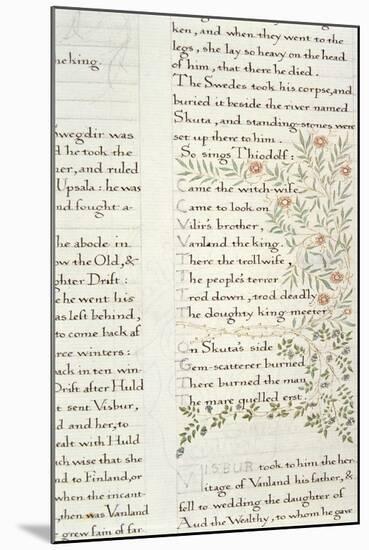 he king.
wegdir was
d he took the
er, and ruled
Upsala : he was
nd fought a-
he abode in
ow the Old, &
ghter Drift :
he went his
as left behind,
to come back af
ree winters :
ack in ten win-
Drift after Huld
t sent Visbur,
d and her, to
ealt with Huld
ch wise that she
d to Finland, or
when the incant-
, then was Vanland
grew fain of far
ken, and when they went to the
legs, she lay so heavy on the head
of him, that there he died.
The Swedes took his corpse, and
buried it beside the river named
Skuta, and standing-stones were
set up there to him.
So sings Thiodolf:
Came the witch-wife
Came to look on
Vilir's brother,
Vanland the king.
There the trollwife,
The people's terror
Trod down, trod deadly
The doughty king-meeter
On Skuta's side
Gem-scatterer burned
There burned the man
The mare quelled erst.
VISBUR took to him the her
itage of Vanland his father, &
fell to wedding the daughter of
Aud the Wealthy, to whom he gave